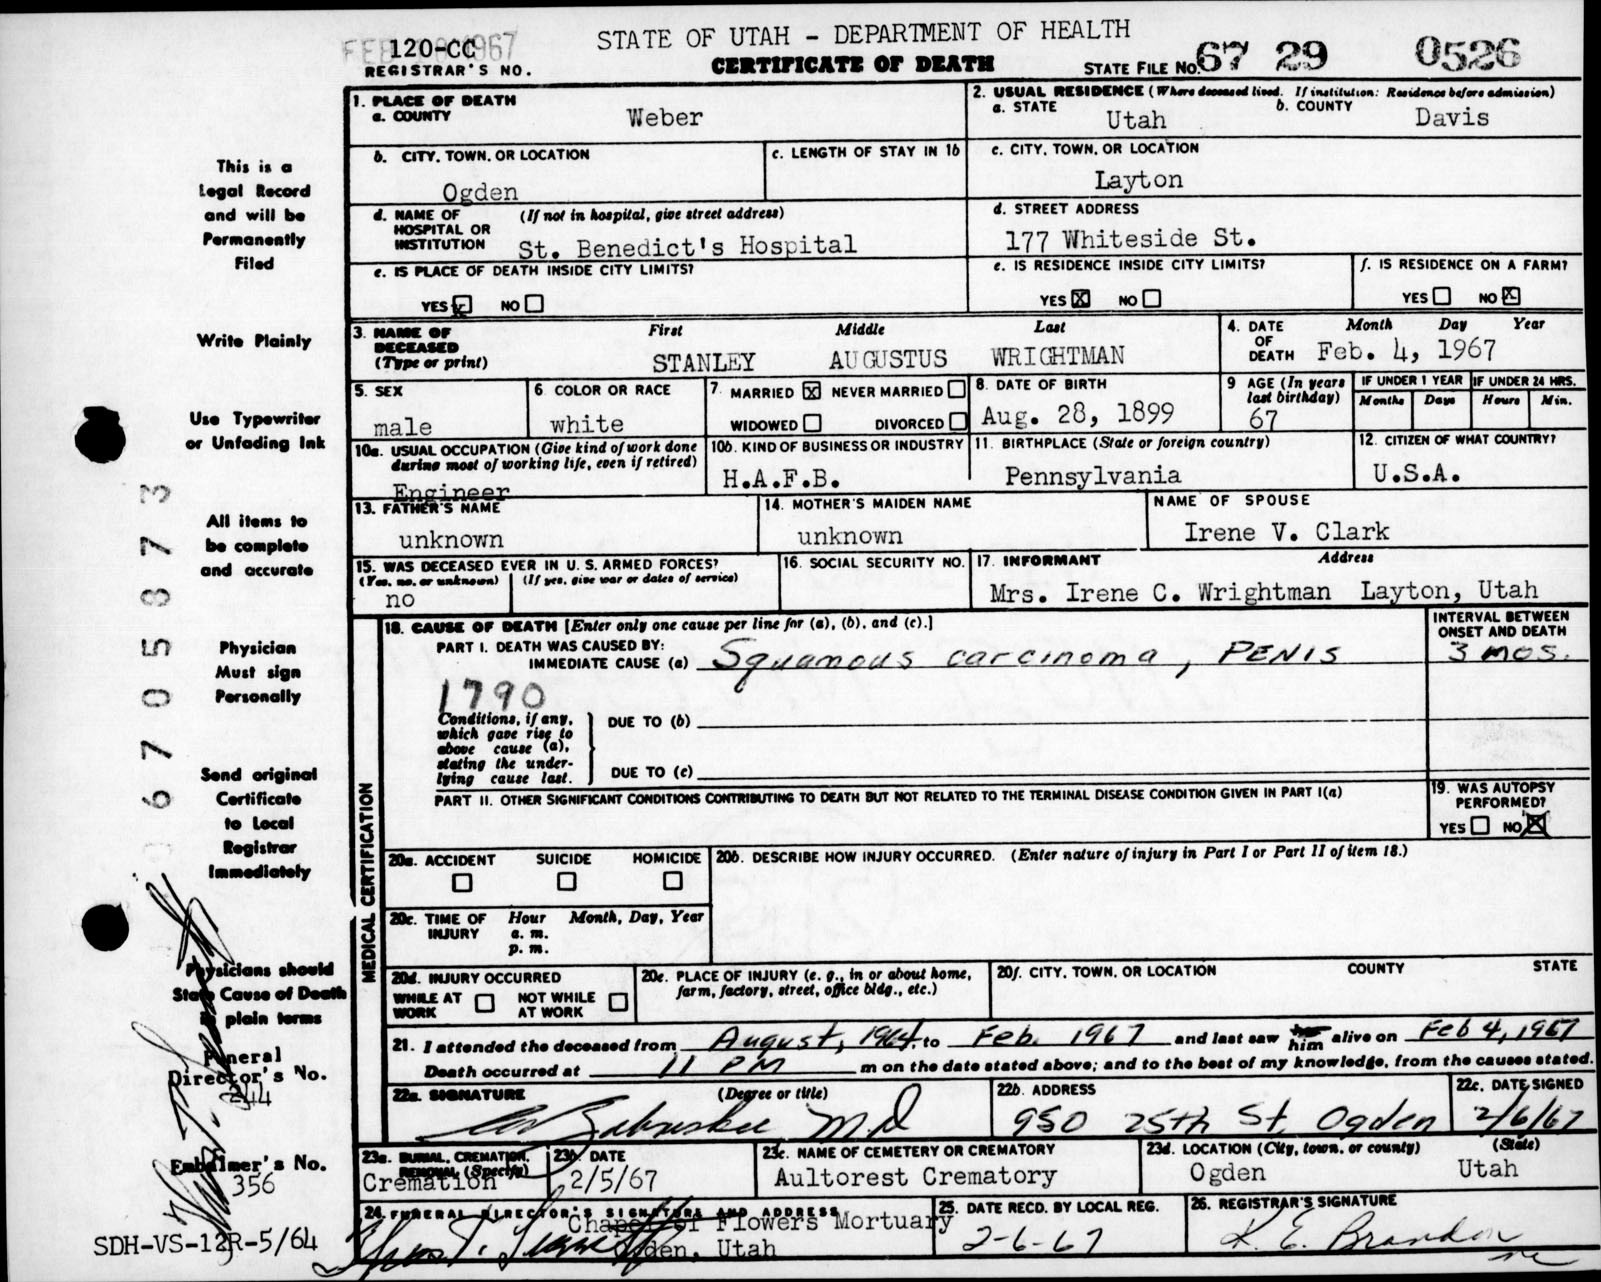 FEB 1967
120-CC
REGISTRAR'S NO.
STATE OF UTAH - DEPARTMENT OF HEALTH
CERTIFICATE OF DEATH
STATE FILE NO. 67 29 0526
This is a
Legal Record
and will be
Permanently
Filed
Write Plainly
Use Typewriter
or Unfading Ink
All items to
be complete
and accurate
Physician
Must sign
Personally
Send original
Certificate
to Local
Registrar
Immediately
Physicians should
State Cause of Death
plain terms
Funeral
Director's No.
344
Embalmer's No.
356
SDH-VS-12R-5/64
6705873
1. PLACE OF DEATH
a. COUNTY
Weber
2. USUAL RESIDENCE (Where deceased lived. If institution: Residence before admission)
a. STATE b. COUNTY
Utah Davis
b. CITY, TOWN, OR LOCATION
Ogden
c. LENGTH OF STAY IN 1b
c. CITY, TOWN, OR LOCATION
Layton
d. NAME OF (If not in hospital, give street address)
HOSPITAL OR
INSTITUTION St. Benedict's Hospital
d. STREET ADDRESS
177 Whiteside St.
e. IS PLACE OF DEATH INSIDE CITY LIMITS?
YES X NO
e. IS RESIDENCE INSIDE CITY LIMITS?
YES X NO
f. IS RESIDENCE ON A FARM?
YES NO X
3. NAME OF First Middle Last
DECEASED
(Type or print) STANLEY AUGUSTUS WRIGHTMAN
4. DATE Month Day Year
OF
DEATH Feb. 4, 1967
5. SEX
male
6 COLOR OR RACE
white
7. MARRIED X NEVER MARRIED
WIDOWED DIVORCED
8. DATE OF BIRTH
Aug. 28, 1899
9 AGE (In years
last birthday)
67
IF UNDER 1 YEAR IF UNDER 24 HRS.
Months Days Hours Min.
10a. USUAL OCCUPATION (Give kind of work done
during most of working life, even if retired)
Engineer
10b. KIND OF BUSINESS OR INDUSTRY
H.A.F.B.
11. BIRTHPLACE (State or foreign country)
Pennsylvania
12. CITIZEN OF WHAT COUNTRY?
U.S.A.
13. FATHER'S NAME
unknown
14. MOTHER'S MAIDEN NAME
unknown
NAME OF SPOUSE
Irene V. Clark
15. WAS DECEASED EVER IN U. S. ARMED FORCES?
(Yes, no, or unknown) (If yes, give war or dates of service)
no
16. SOCIAL SECURITY NO.
17. INFORMANT Address
Mrs. Irene C. Wrightman Layton, Utah
MEDICAL CERTIFICATION
18. CAUSE OF DEATH [Enter only one cause per line for (a), (b), and (c).]
PART I. DEATH WAS CAUSED BY:
IMMEDIATE CAUSE (a) Squamous carcinoma, PENIS
INTERVAL BETWEEN
ONSET AND DEATH
3 MOS.
1790
Conditions, if any,
which gave rise to
above cause (a),
stating the under-
lying cause last.
DUE TO (b)
DUE TO (c)
PART II. OTHER SIGNIFICANT CONDITIONS CONTRIBUTING TO DEATH BUT NOT RELATED TO THE TERMINAL DISEASE CONDITION GIVEN IN PART I(a)
19. WAS AUTOPSY
PERFORMED?
YES NO X
20a. ACCIDENT SUICIDE HOMICIDE
20b. DESCRIBE HOW INJURY OCCURRED. (Enter nature of injury in Part I or Part II of item 18.)
20c. TIME OF Hour Month, Day, Year
INJURY a. m.
p. m.
20d. INJURY OCCURRED
WHILE AT NOT WHILE
WORK AT WORK
20e. PLACE OF INJURY (e. g., in or about home,
farm, factory, street, office bldg., etc.)
20f. CITY, TOWN, OR LOCATION COUNTY STATE
21. I attended the deceased from August, 1964 to Feb. 1967 and last saw her him alive on Feb 4, 1967
Death occurred at 11 PM m on the date stated above; and to the best of my knowledge, from the causes stated.
22a. SIGNATURE (Degree or title)
M D
22b. ADDRESS
950 25th St, Ogden
22c. DATE SIGNED
2/6/67
23a. BURIAL, CREMATION,
REMOVAL (Specify)
Cremation
23b. DATE
2/5/67
23c. NAME OF CEMETERY OR CREMATORY
Aultorest Crematory
23d. LOCATION (City, town, or county) (State)
Ogden Utah
24. FUNERAL DIRECTOR'S SIGNATURE AND ADDRESS
Chapel of Flowers Mortuary
Ogden, Utah
25. DATE RECD. BY LOCAL REG.
2-6-67
26. REGISTRAR'S SIGNATURE
K. E. Brandon